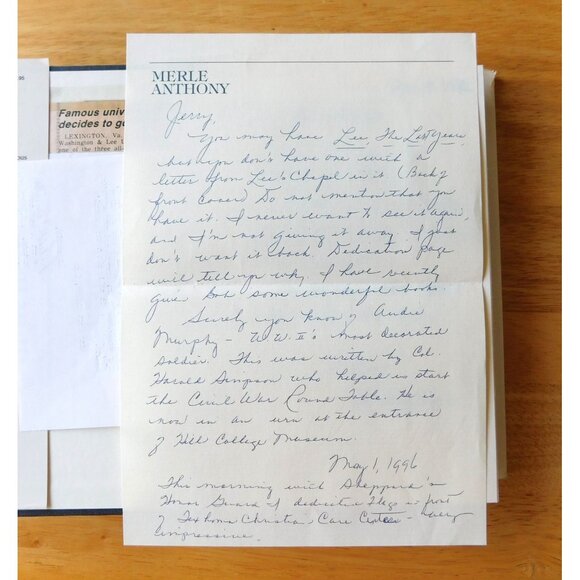 MERLE
ANTHONY
Jerry,
You may have Lee, The Last Years
but you don't have one with a
letter from Lee's Chapel in it (Back of
front cover) Do not mention that you
have it. I never want to see it again,
and I'm not giving it away. I just
don't want it back. Dedication page
will tell you why. I have recently
give Bob some wonderful books.
Surely you know of Audie
Murphy - W.W. II's most decorated
soldier. This was written by Col.
Harold Simpson who helped us start
the Civil War Round Table. He is
now in an urn at the entrance
of Hill College Museum.
May 1, 1996
This morning with Sheppard's
Honor Guard I dedicated Flags in front
of Texhoma Christian Care Center - very
impressive.
Famous univ
decides to g
LEXINGTON, Va.
Washington & Lee U
one of the three all-